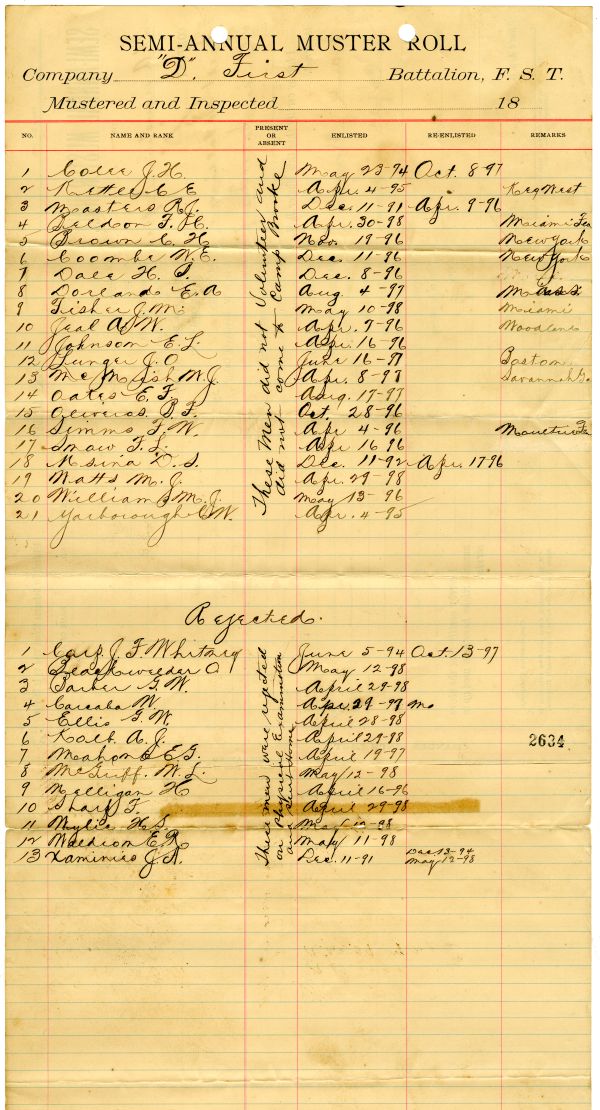 SEMI-ANNUAL MUSTER ROLL
Company "D", First Battalion, F. S. T.
Mustered and Inspected 18
NO. NAME AND RANK PRESENT OR ABSENT ENLISTED RE-ENLISTED REMARKS
These Men did not Volunteer and
did not come to Camp Brooke
1 J. H. May 23-94 Oct. 8-97
2 C E Apr. 4-95 Key West
3 Masters R. J. Dec. 11-91 Apr. 9-96
4 F. H. Apr. 30-98 Miami Fla
5 Brown C. H Nov. 19-96 New York
6 Coombs W. E. Dec. 11-96 New York
7 Dale H. F. Dec. 8-96
8 Dorland E. A Aug 4-97 Mass
9 Fisher J. M. May 10-98 Miami
10 A. W. Apr. 9-96
11 Johnson E. L. Apr. 16-96
12 J. O June 16-97 Boston
13 W. J. Apr. 8-97 Savannah Ga.
14 Oates E. F. Aug. 17-97
15 B. F. Oct. 28-96
16 Simms F. W. Apr 4-96
17 Snow F. L. Apr 16 96
18 D. S. Dec. 11-92 Apr. 17 96
19 Watts M. J. Apr. 29-98
20 Williams M. J. May 13-96
21 Yarborough C. W. Apr. 4-95
Rejected.
These men were rejected
on physical Examination
and sent Home
1 Corp. J. F. Whitney June 5-94 Oct. 13-97
2 Blackwelder O May 12-98
3 G. W. April 29-98
4 W. Apr. 29-97
5 Ellis G. W. April 28-98
6 Kolb A. J. April 29-98
2634
7 E G. April 19-97
8 McGriff. W. L. May 12-98
9 Milligan H April 16-96
10 Sharp F April 29-98
11 Wylie H. S. May 12-98
12 E. R. May 11-98
13 J. A. Dec. 11-91 Dec. 13-94
May 12-98